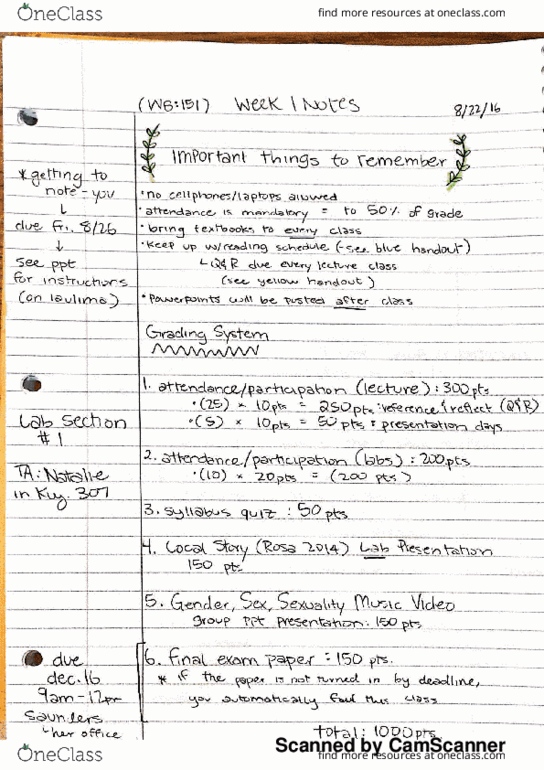 OneClass
find more resources at oneclass.com
(WS:151) Week 1 Notes
8/22/16
Important things to remember
* getting to
note-you
↓
due Fri. 8/26
↓
see ppt
for instructions
(on laulima)
• no cellphones/laptops allowed
• attendance is mandatory = to 50% of grade
• bring textbooks to every class
• keep up w/reading schedule (-see blue handout)
↳ Q&R due every lecture class
(see yellow handout)
• Powerpoints will be posted after class
Grading System
1. attendance/participation (lecture) : 300pts
• (25) × 10pts = 250pts : reference & reflect (Q&R)
• (5) × 10pts = 50pts : presentation days
Lab section
#1
TA: Natalie
in Kuy. 307
2. attendance/participation (labs) : 200pts
• (10) × 20pts = (200 pts)
3. syllabus quiz : 50pts
4. Local Story (Rosa 2014) Lab Presentation
150 pts
5. Gender, Sex, Sexuality Music Video
group ppt presentation: 150pts
due
dec. 16
9am-12pm
Saunders
↳ her office
6. final exam paper = 150 pts.
* if the paper is not turned in by deadline,
you automatically fail this class
total: 1000pts
Scanned by CamScanner
OneClass
find more resources at oneclass.com